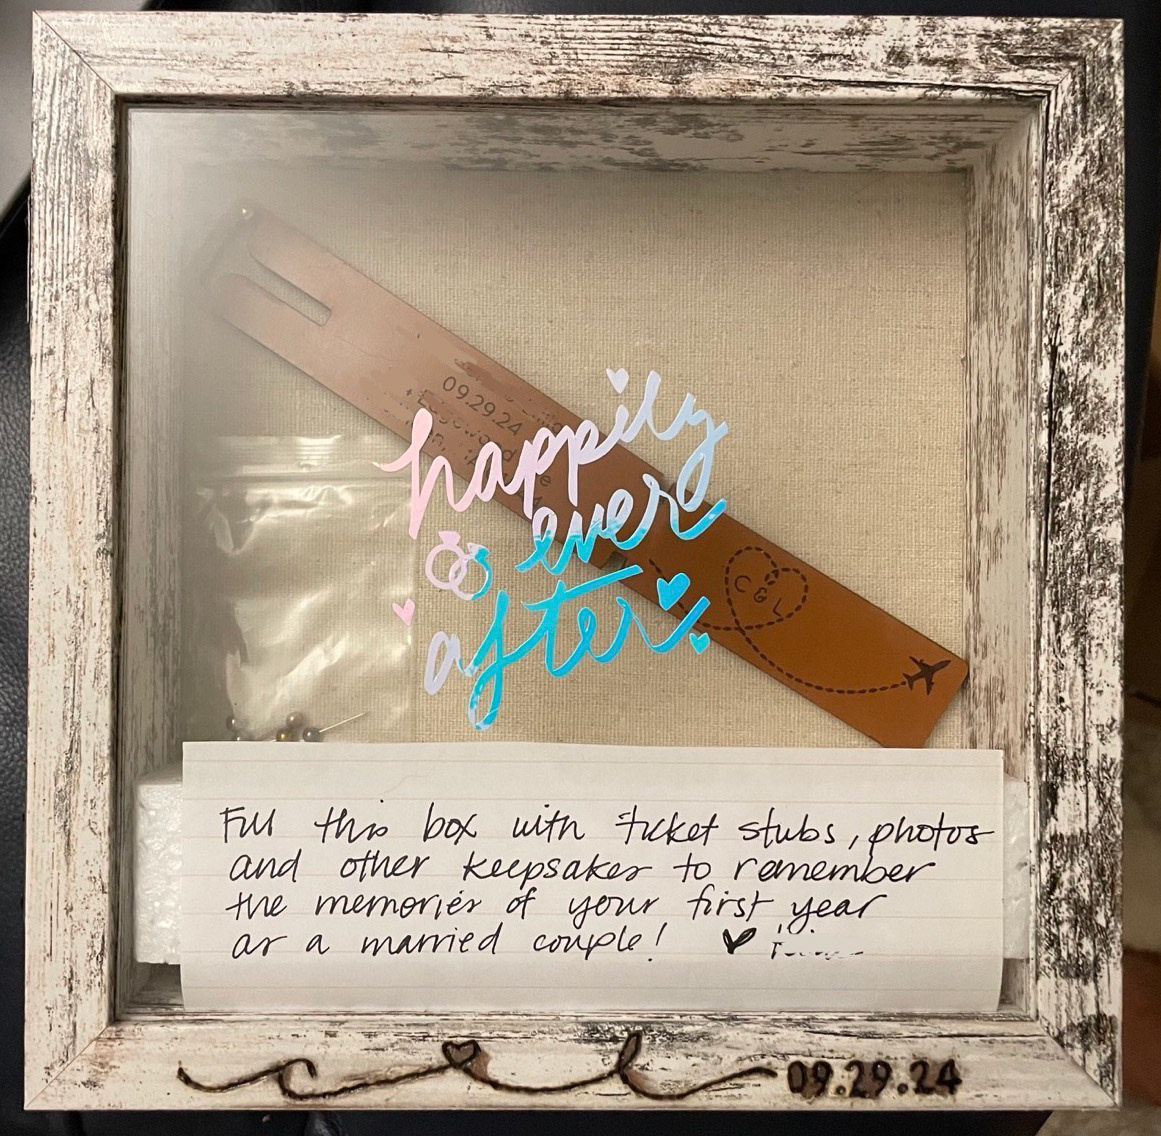 09.29.24
happily
ever
after
C & L
Fill this box with ticket stubs, photos
and other keepsakes to remember
the memories of your first year
as a married couple! ♥
c l 09.29.24